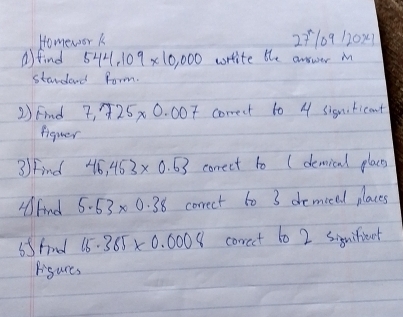 Homework 27th/09/2024
1) find 544,109 x 10,000 write the answer in
standard form.
2) Find 7,725 x 0.007 correct to 4 significant
figuer
3) Find 46,453 x 0.53 correct to 1 demical places
4) find 5.53 x 0.38 correct to 3 demical places
5) find 15.365 x 0.0008 correct to 2 significant
figures